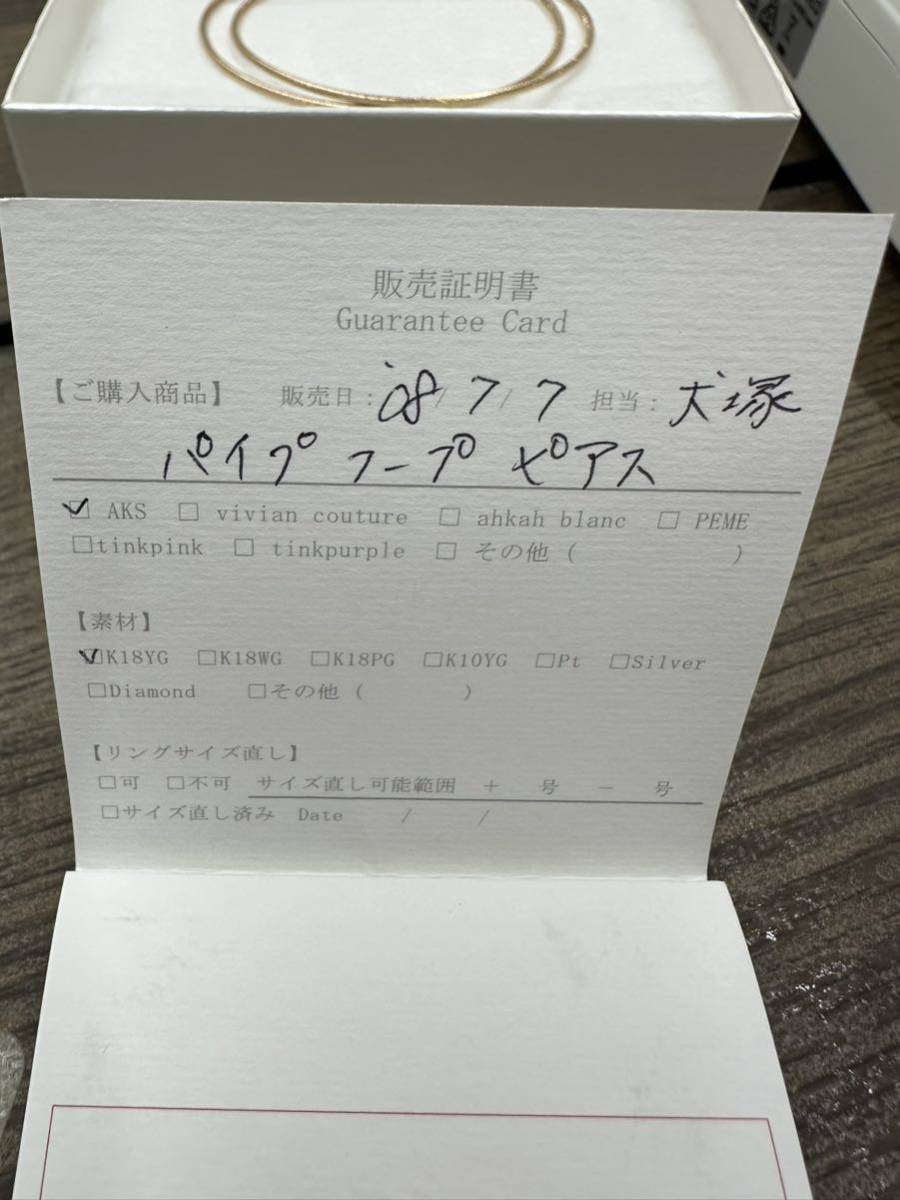 販売証明書
Guarantee Card
【ご購入商品】 販売日: '08/7/7 担当: 犬塚
パイプ フープ ピアス
☑ AKS □ vivian couture □ ahkah blanc □ PEME
□tinkpink □ tinkpurple □ その他 ( )
【素材】
☑K18YG □K18WG □K18PG □K10YG □Pt □Silver
□Diamond □その他 ( )
【リングサイズ直し】
□可 □不可 サイズ直し可能範囲 + 号 − 号
□サイズ直し済み Date / /